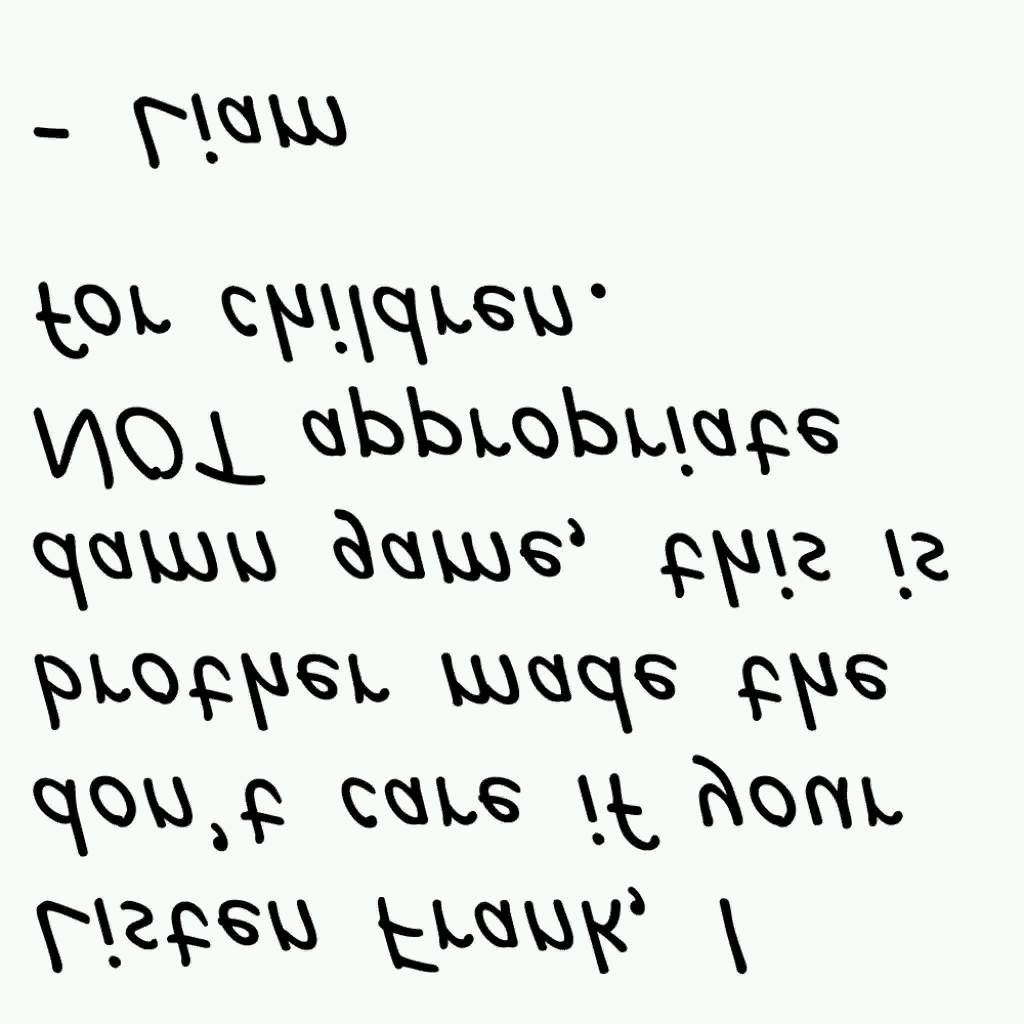 Listen Frank, I
don't care if your
brother made the
damn game, this is
NOT appropriate
for children.
- Liam